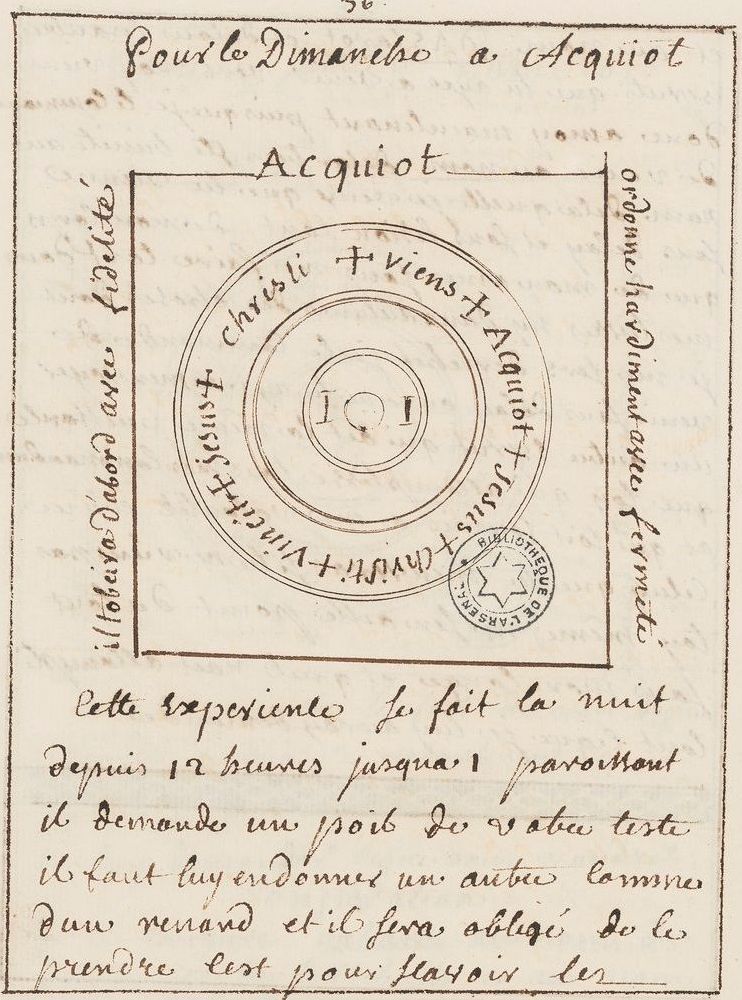 36.
Pour le Dimanche a Acquiot
Acquiot
il tobeira d'abord avec fidelité
ordonne hardiment avec fermeté
+ viens + Acquiot + Jesus + Christi + Vincit + Jesus + Christi
I I
BIBLIOTHEQUE DE L'ARSENAL
Cette Experience se fait la nuit
depuis 12 heures jusqua 1 paroissant
il demande un poil de votre teste
il faut luy en donner un autre comme
dun renard et il sera obligé de le
prendre cest pour scavoir les